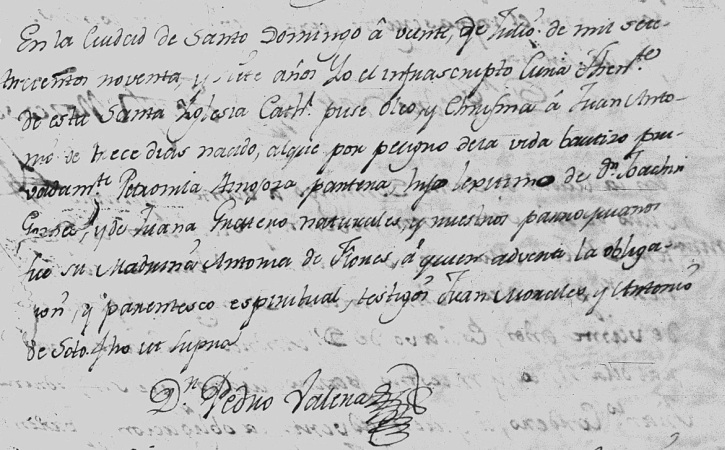 En la Ciudad de Santo Domingo â veinte, de Julio. de mil sete-
trecentos noventa, y siete años Yo el infrascripto Cura Then.te
de esta Santa Yglesia Cath.l puse oleo, y Chrisma â Juan Anto-
nio de trece dias nacido, alque por peligro dela vida bautizo pri-
vadam.te Petronia partera hijo lexitimo de d.n Joachin
y de Juana Guerero naturales, y nuestros parroquianos
fue su Madrina Antonia de Flores, â quien adverti la obliga-
ion, y parentesco espiritual, testigos Juan Morales, y Antonio
de Soto. fho ut supra
D.n Pedro Valera